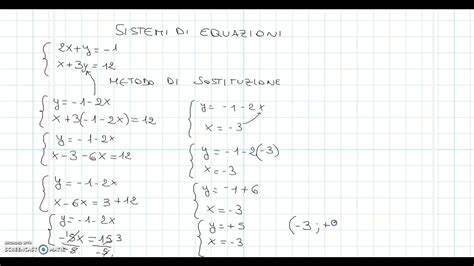 SISTEMI DI EQUAZIONI
{ 2x+y=-1
x+3y=12
METODO DI SOSTITUZIONE
{ y=-1-2x
x+3(-1-2x)=12
{ y=-1-2x
x-3-6x=12
{ y=-1-2x
x-6x=3+12
{ y=-1-2x
-5x=15 3
-5 -5
{ y=-1-2x
x=-3
{ y=-1-2(-3)
x=-3
{ y=-1+6
x=-3
{ y=+5
x=-3
(-3;+
SCREENCAST MATIC